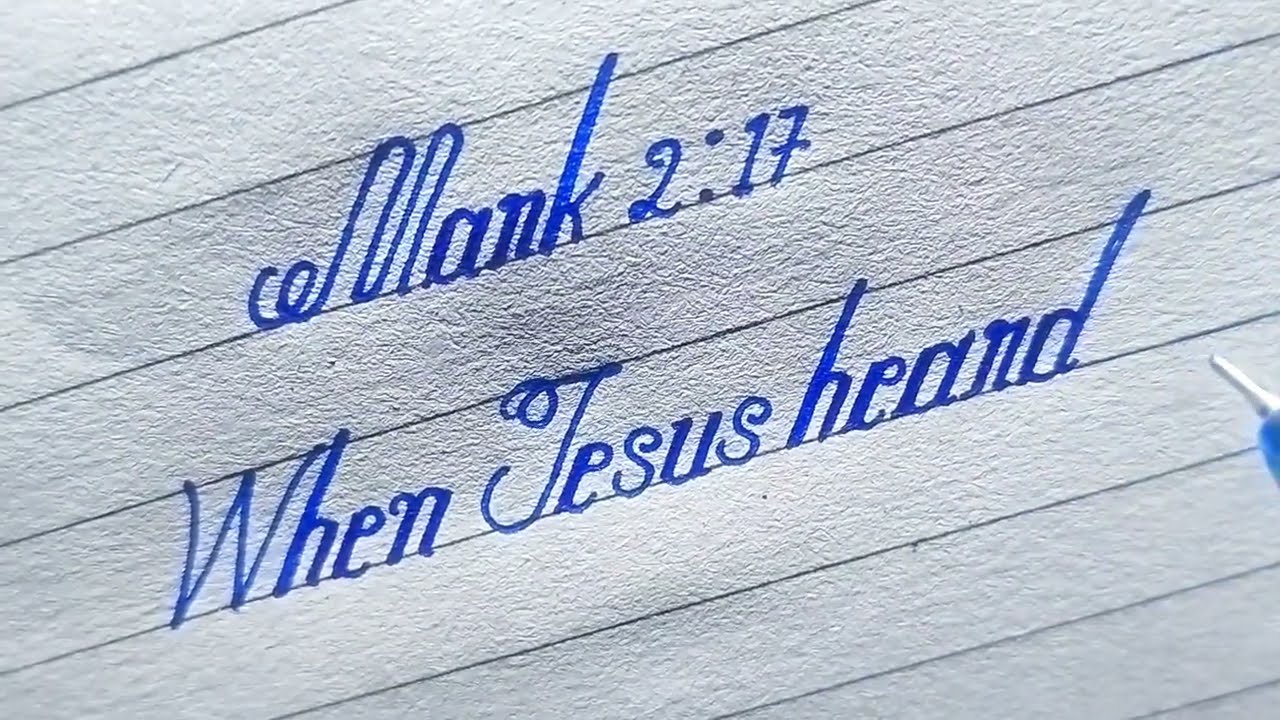 Mark 2:17
When Jesus heard